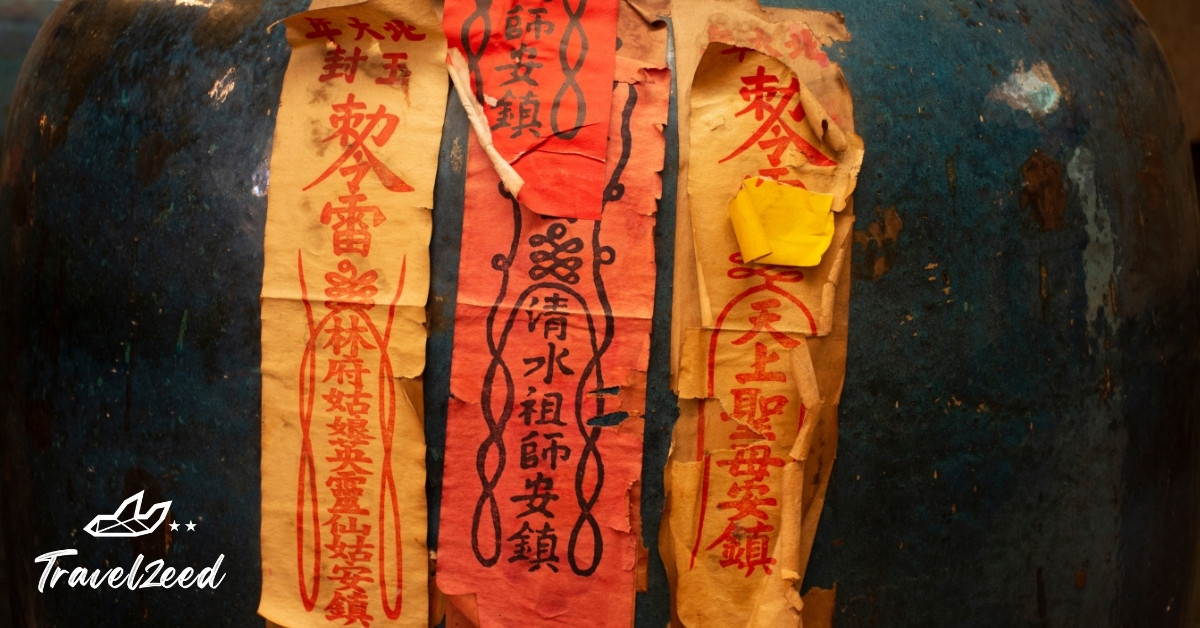 北大年
玉封
勅令雷
林府姑娘英靈仙姑安鎮
師安鎮
清水祖師安鎮
北大
勅令
天上聖母安鎮
Travel2eed